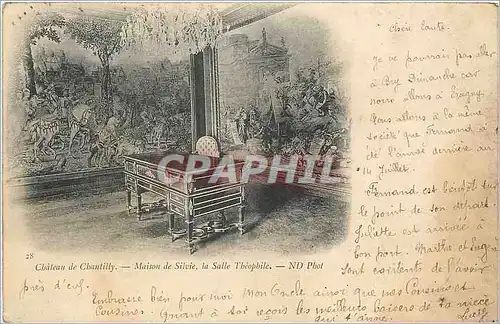 Chère Tante.
Je ne pourrais pas aller
à Bry Dimanche car
nous allons à Eragny
nous allons à la même
société que Fernand a
été l'année dernière au
14 Juillet
Fernand est bientôt sur
le point de son départ
Juliette est arrivée à
bon port. Marthe et
sont contents de l'avoir
près d'eux.
CPARAMA.COM
28
Château de Chantilly. — Maison de Silvie, la Salle Théophile. — ND Phot
Embrasse bien pour moi Mon Oncle ainsi que mes Cousins et
Cousines. Quant à toi reçois les meilleurs baisers de ta nièce
qui t'aime.